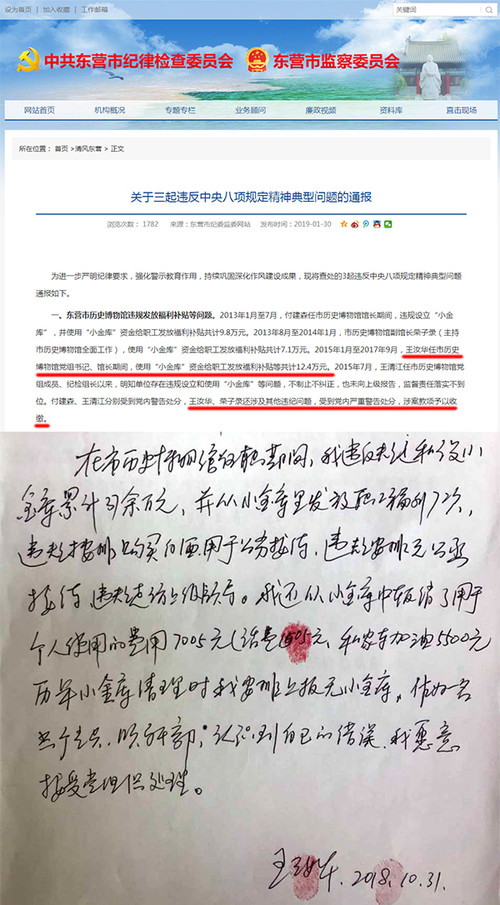 设为首页 | 加入收藏 | 工作邮箱
关键词
中共东营市纪律检查委员会 东营市监察委员会
网站首页 机构概况 专题专栏 业务顾问 廉政视频 资料库 直击现场
所在位置： 首页 >清风东营 > 正文
关于三起违反中央八项规定精神典型问题的通报
浏览次数： 1782 来源：东营市纪委监委网站 发布时间：2019-01-30
为进一步严明纪律要求，强化警示教育作用，持续巩固深化作风建设成果，现将查处的3起违反中央八项规定精神典型问题
通报如下。
一、东营市历史博物馆违规发放福利补贴等问题。2013年1月至7月，付建森任市历史博物馆馆长期间，违规设立“小金
库”，并使用“小金库”资金给职工发放福利补贴共计9.8万元。2013年8月至2014年1月，市历史博物馆副馆长荣子录（主持
市历史博物馆全面工作），使用“小金库”资金给职工发放福利补贴共计7.1万元。2015年1月至2017年9月，王汝华任市历史
博物馆党组书记、馆长期间，使用“小金库”资金给职工发放福利补贴等共计12.4万元。2015年7月，王清江任市历史博物馆党
组成员、纪检组长以来，明知单位存在违规设立和使用“小金库”等问题，不制止不纠正，也未向上级报告，监督责任落实不到
位。付建森、王清江分别受到党内警告处分，王汝华、荣子录还涉及其他违纪问题，受到党内严重警告处分，涉案款项予以收
缴。
在市历史博物馆任职期间，我违反规定私设小
金库累计31余万元，并从小金库里发放职工福利12次，
违规安排购买白酒用于公务接待，违规安排无公函
接待，违规走访上级领导。我还从小金库中报销了用于
个人使用的费用7005元（话费1505元，私家车加油5500元
历年小金库清理时我安排上报无小金库，作为一名
共产党员，领导干部，认识到自己的错误，我愿意
接受党组织处理。
王汝华. 2018.10.31.